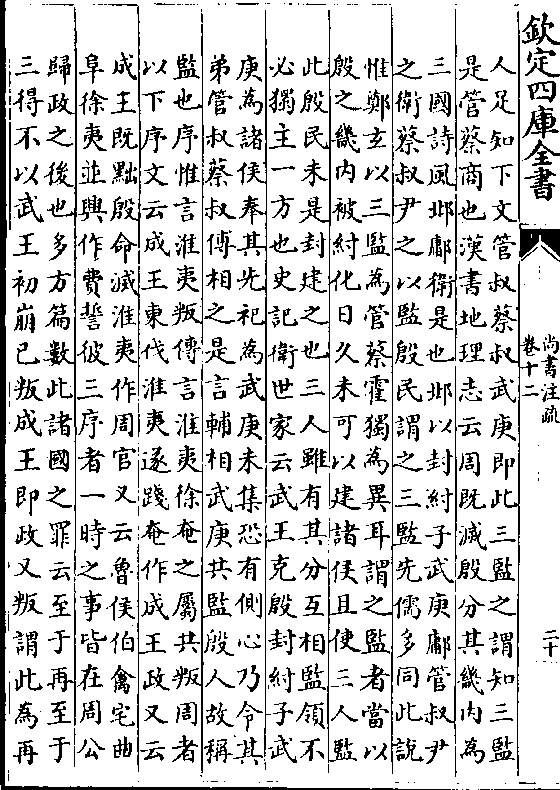 欽定四庫全書
尚書注疏
卷十二
二十
人足知下文管叔蔡叔武庚即此三監之謂知三監
是管蔡商也漢書地理志云周既滅殷分其畿内為
三國詩風邶鄘衛是也邶以封紂子武庚鄘管叔尹
之衛蔡叔尹之以監殷民謂之三監先儒多同此説
惟鄭玄以三監為管蔡霍獨為異耳謂之監者當以
殷之畿内被紂化日久未可以建諸侯且使三人監
此殷民未是封建之也三人雖有其分互相監領不
必獨主一方也史記衛世家云武王克殷封紂子武
庚為諸侯奉其先祀為武庚未集恐有側心乃令其
弟管叔蔡叔傅相之是言輔相武庚共監殷人故稱
監也序惟言淮夷叛傳言淮夷徐奄之屬共叛周者
以下序文云成王東伐淮夷遂踐奄作成王政又云
成王既黜殷命滅淮夷作周官又云魯侯伯禽宅曲
阜徐夷並興作費誓彼三序者一時之事皆在周公
歸政之後也多方篇數此諸國之罪云至于再至于
三得不以武王初崩已叛成王即政又叛謂此為再